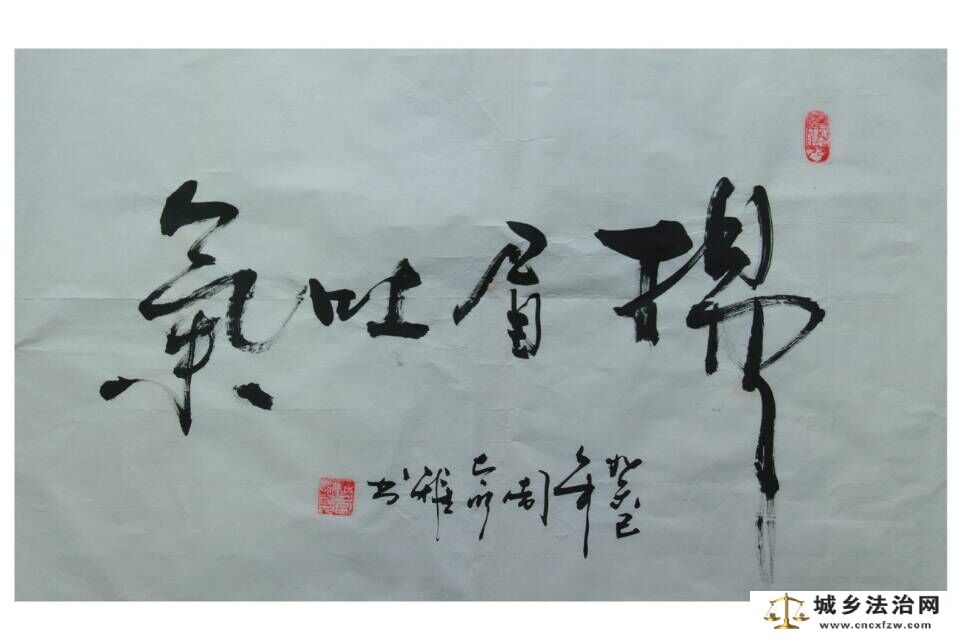 揚眉吐氣
癸巳年周雅书
城乡法治网
www.cncxfzw.com